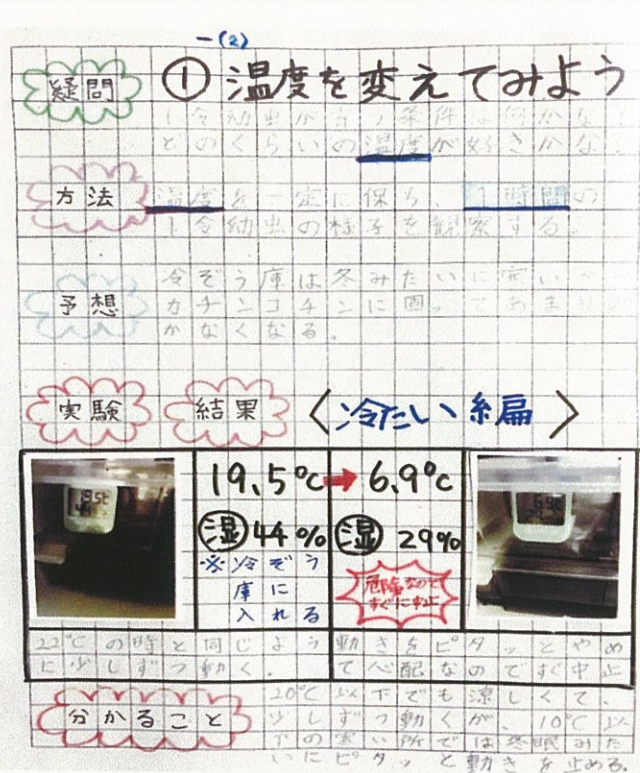 一(2)
疑問
① 温度を変えてみよう
1令幼虫が育つ条件は何かな?
どのくらいの温度が好きかな。
方法
温度を一定に保ち、1時間の
1令幼虫の様子を観察する。
予想
冷ぞう庫は冬みたいに寒いから
カチンコチンに固ってあまり
かなくなる。
実験 結果 〈冷たい編〉
19.5℃→6.9℃
湿44% 湿29%
※冷ぞう
庫に
入れる
危険なので
すぐに中止
22℃の時と同じよう
に少しずつ動く。
動きをピタッとやめ
て心配なのですぐ中止
分かること
20℃以下でも涼しくて、
少しずつ動くが、10℃以
下の寒い所では冬眠みた
いにピタッと動きを止める。